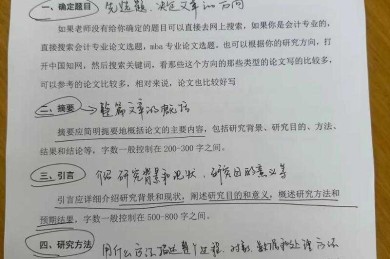 一、确定题目 先选题，决定文章的方向
如果老师没有给你确定的题目可以直接去网上搜索，如果你是会计专业的，
直接搜索会计专业论文选题，mba 专业论文选题。也可以根据你的研究方向，打
开中国知网，然后搜索关键词，看那些这个方向的那些类型的论文写的比较多，
可以参考的论文比较多，相对来说，论文也比较好写
二、摘要 整篇文章的概括
摘要应简明扼要地概括论文的主要内容，包括研究背景、研究目的、方法、
结果和结论等，字数一般控制在 200-300 字之间。
三、引言 介绍研究背景和现状，研究目的意义等
引言应详细介绍研究背景和现状，阐述研究目的和意义，概述研究方法和
预期结果，字数一般控制在 500-800 字之间。
四、研究方法 用什么方法 整个过程，对数 数据和处理方法